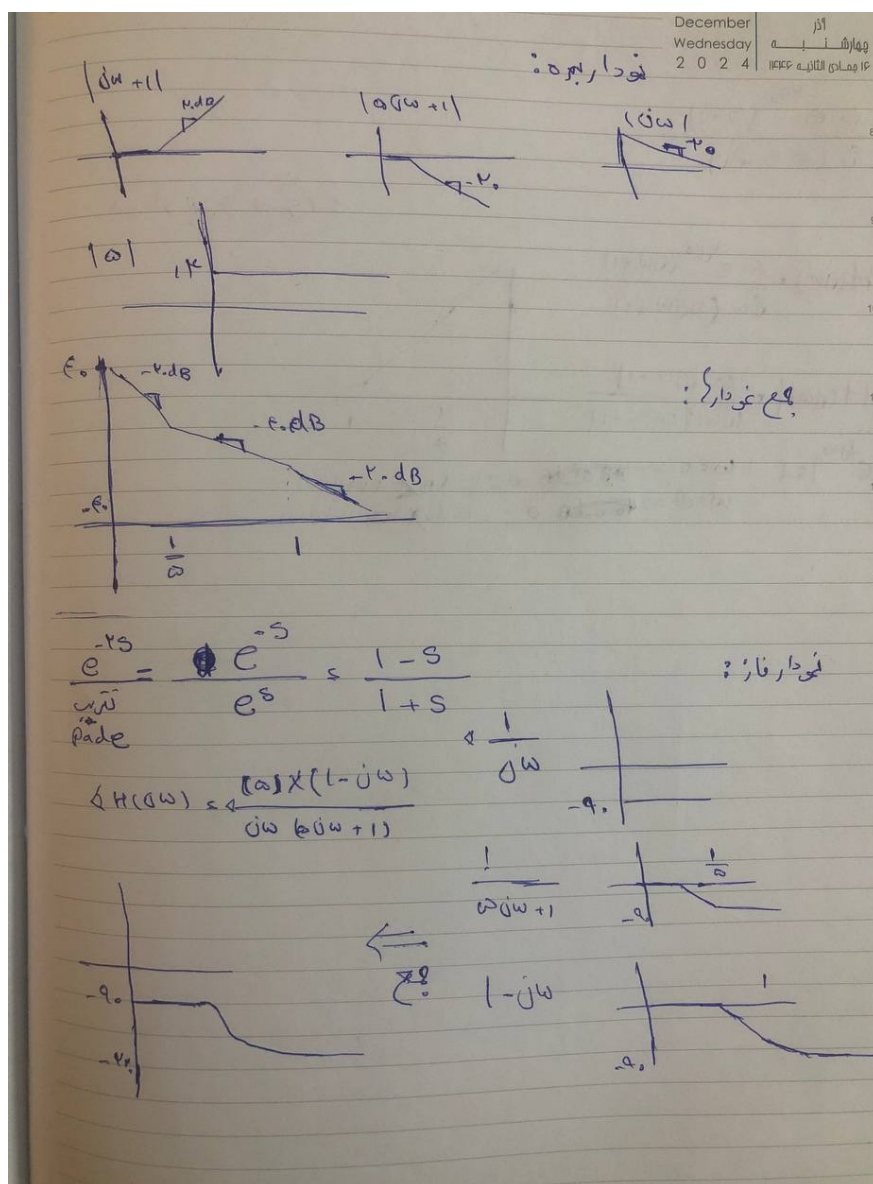 December
Wednesday
2 0 2 4
آذر
چهارشنبه
۱۴ جمادی الثانیه ۱۴۴۶
نمودار بهره:
|jω +1|
۲۰dB
|۵jω+1|
-۲۰
|jω|
-۲۰
|۵|
۱۴
جمع نمودارها:
۴۰
-۲۰dB
-۴۰dB
-۲۰dB
-۴۰
1/۵
1
نمودار فاز:
e^-۲s = e^-s / e^s = 1-s / 1+s
تقریب
pade
∢ 1/jω
-۹۰
∢H(jω) = ∢ (۵)×(1-jω) / jω(۵jω+1)
1/۵jω+1
1/۵
-۹۰
⇐
جمع
1-jω
1
-۹۰
-۹۰
-۲۷۰